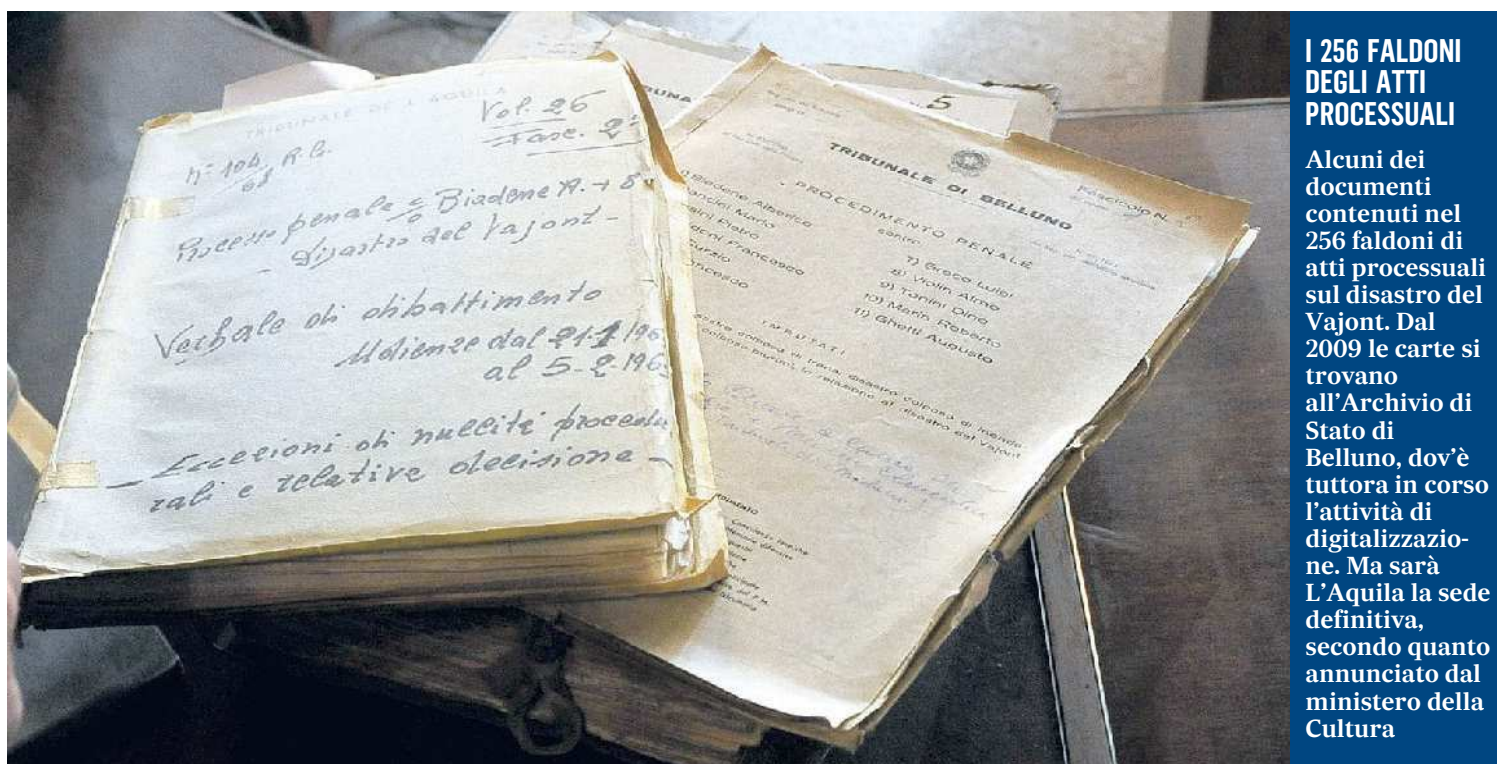 TRIBUNALE DE L'AQUILA
Vol. 26
Fasc. 2°
N° 104/68 R.G.
Processo penale c/o Biadene A. + 8
Disastro del Vajont -
Verbale di dibattimento
Udienze dal 21-1-196
al 5-2-196
- Eccezioni di nullità procedu
rali e relative decisione -
TRIBUNA
5
TRIBUNALE DI BELLUNO
Fascicolo N.
PROCEDIMENTO PENALE
contro
Biadene Alberico
Mario
Pietro
Francesco
7) Greco Luigi
8) Violin Almo
9) Tonini Dino
10) Marin Roberto
11) Ghetti Augusto
IMPUTATI
di frana, disastro colposo di
in relazione al disastro del Vajont
I 256 FALDONI
DEGLI ATTI
PROCESSUALI
Alcuni dei
documenti
contenuti nel
256 faldoni di
atti processuali
sul disastro del
Vajont. Dal
2009 le carte si
trovano
all'Archivio di
Stato di
Belluno, dov'è
tuttora in corso
l'attività di
digitalizzazio-
ne. Ma sarà
L'Aquila la sede
definitiva,
secondo quanto
annunciato dal
ministero della
Cultura